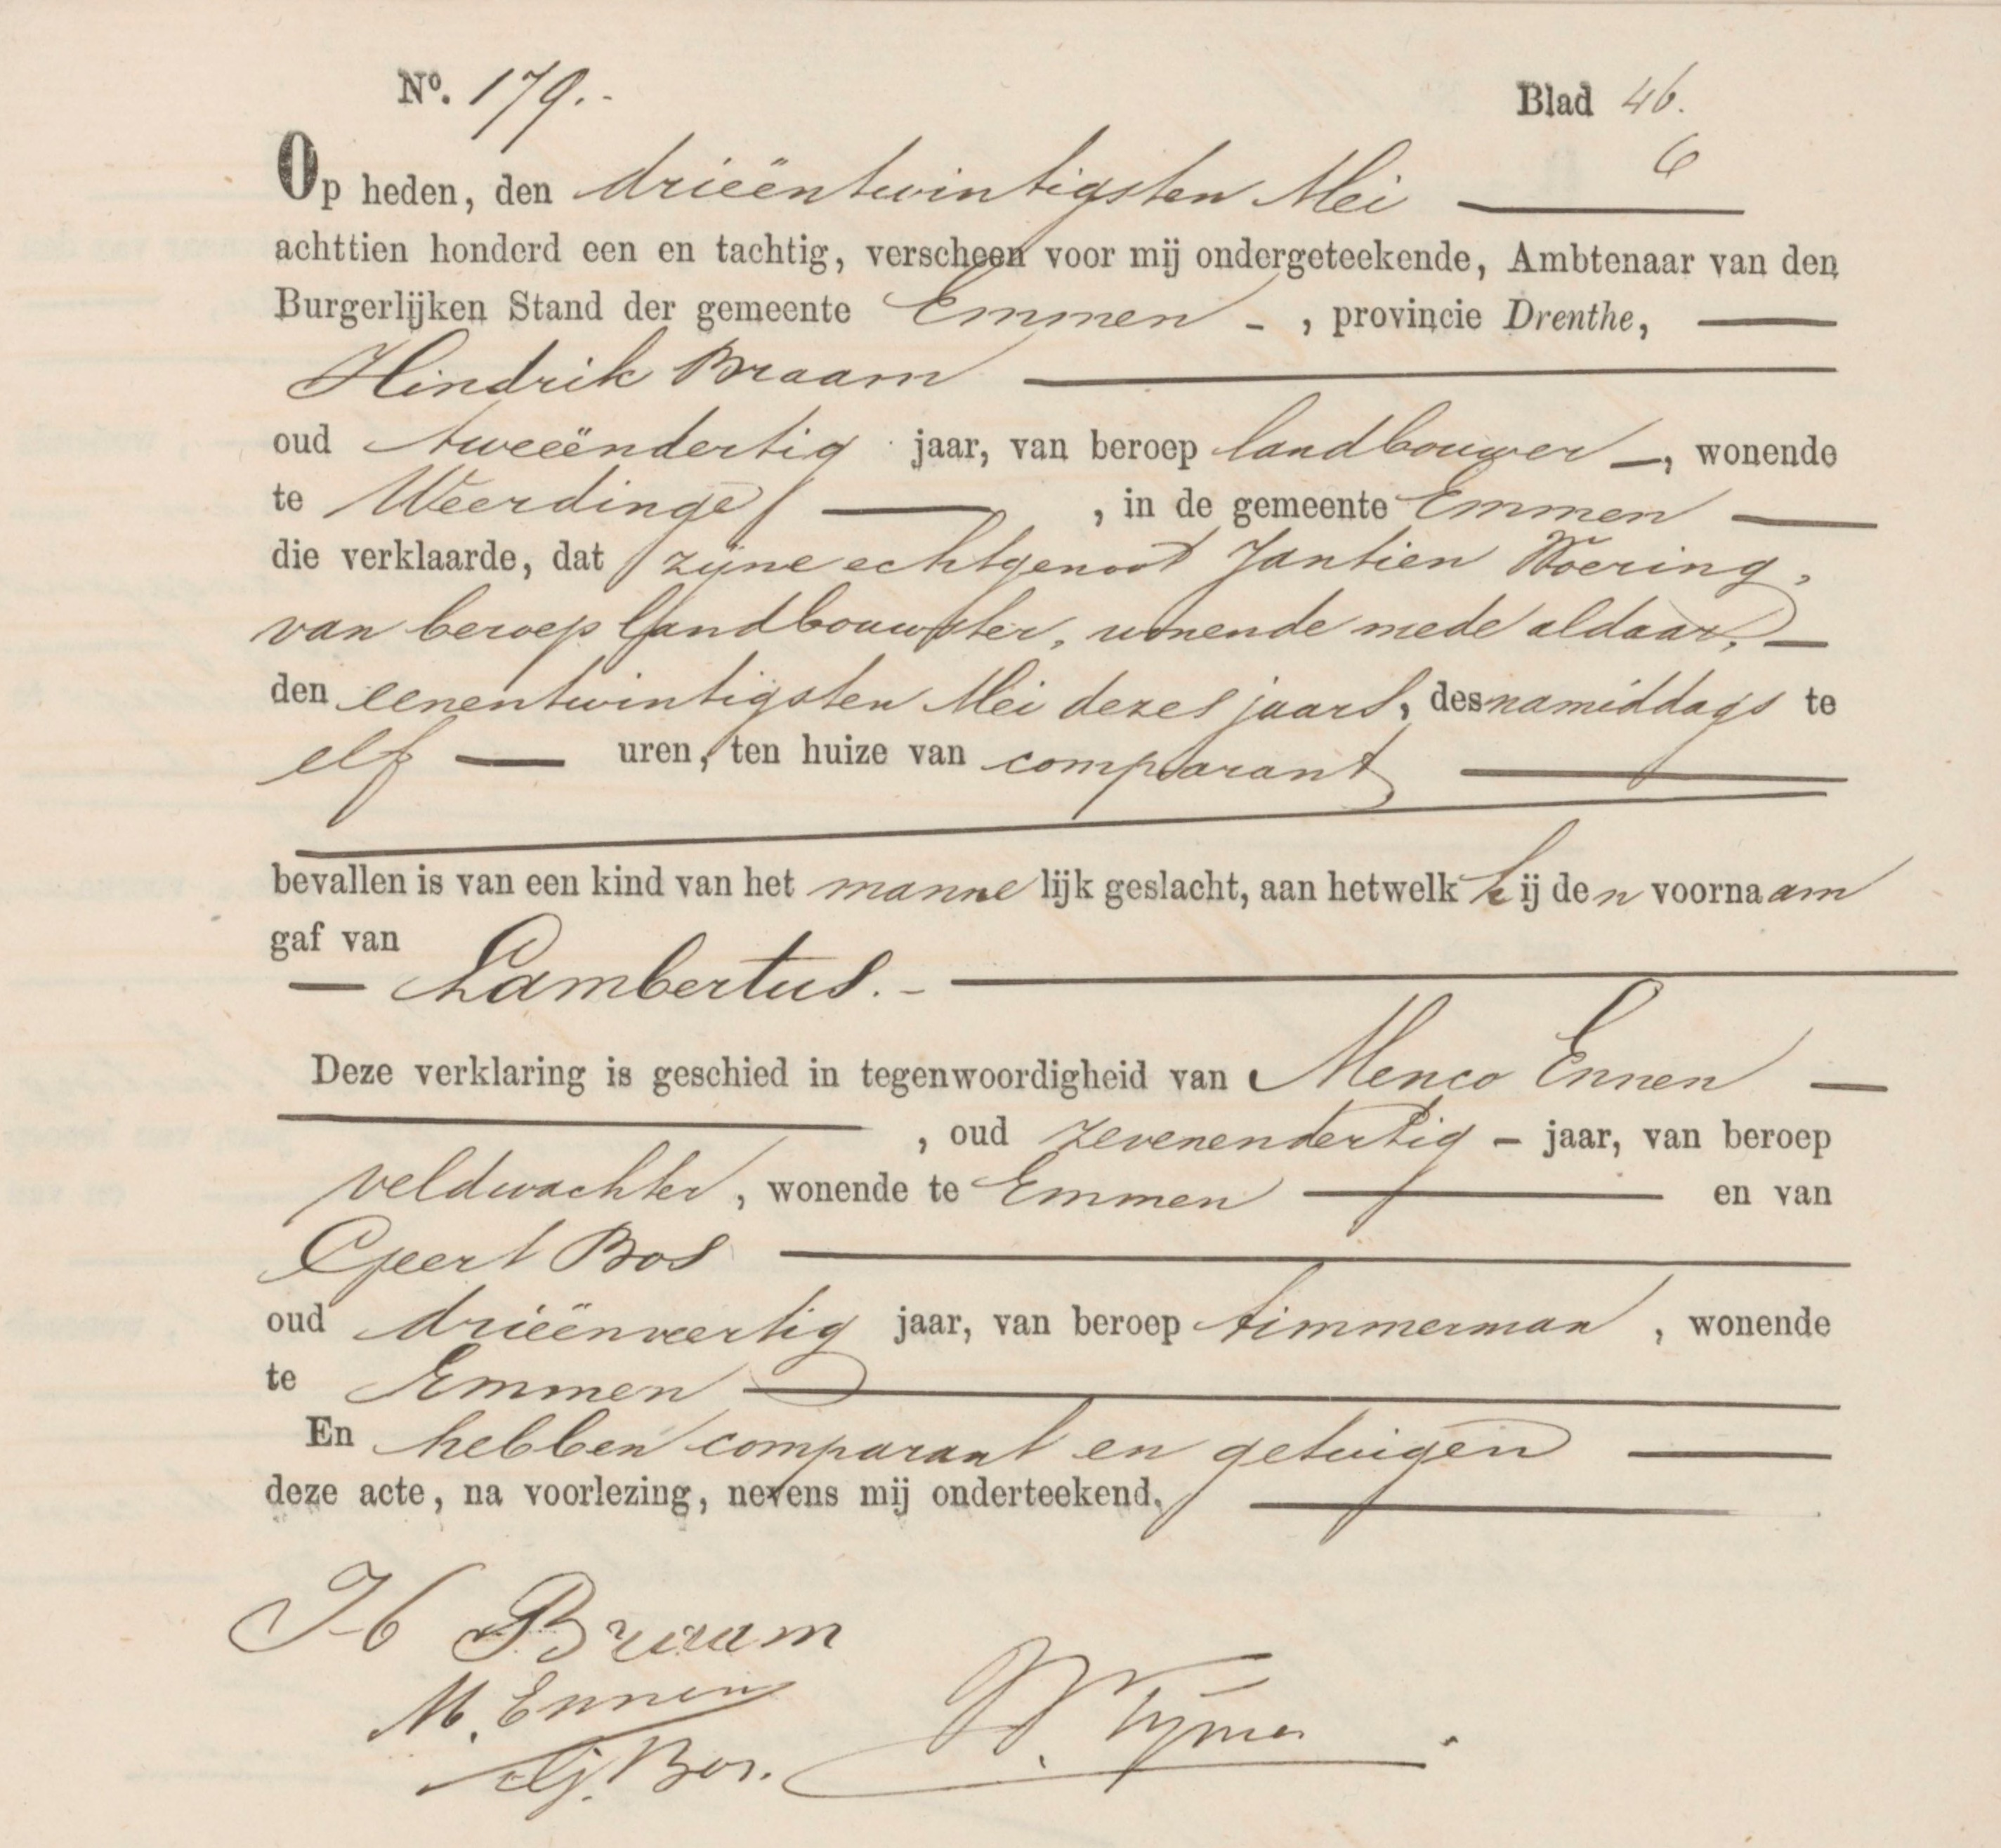 No. 179.- Blad 46.
6
Op heden, den drieëntwintigsten Mei
achttien honderd een en tachtig, verscheen voor mij ondergeteekende, Ambtenaar van den
Burgerlijken Stand der gemeente Emmen - , provincie Drenthe,
Hindrik Braam
oud tweeëndertig jaar, van beroep landbouwer -, wonende
te Weerdinge , in de gemeente Emmen
die verklaarde, dat zijne echtgenoot Jantien Woering,
van beroep landbouwster, wonende mede aldaar,
den eenentwintigsten Mei dezes jaars, des namiddags te
elf uren, ten huize van comparant
bevallen is van een kind van het mannelijk geslacht, aan hetwelk hij den voornaam
gaf van
Lambertus.-
Deze verklaring is geschied in tegenwoordigheid van Menco Ennen
, oud zevenendertig - jaar, van beroep
veldwachter, wonende te Emmen en van
Geert Bos
oud drieënveertig jaar, van beroep timmerman, wonende
te Emmen
En hebben comparant en getuigen
deze acte, na voorlezing, nevens mij onderteekend.
H Braam
M. Ennen
G. Bos.